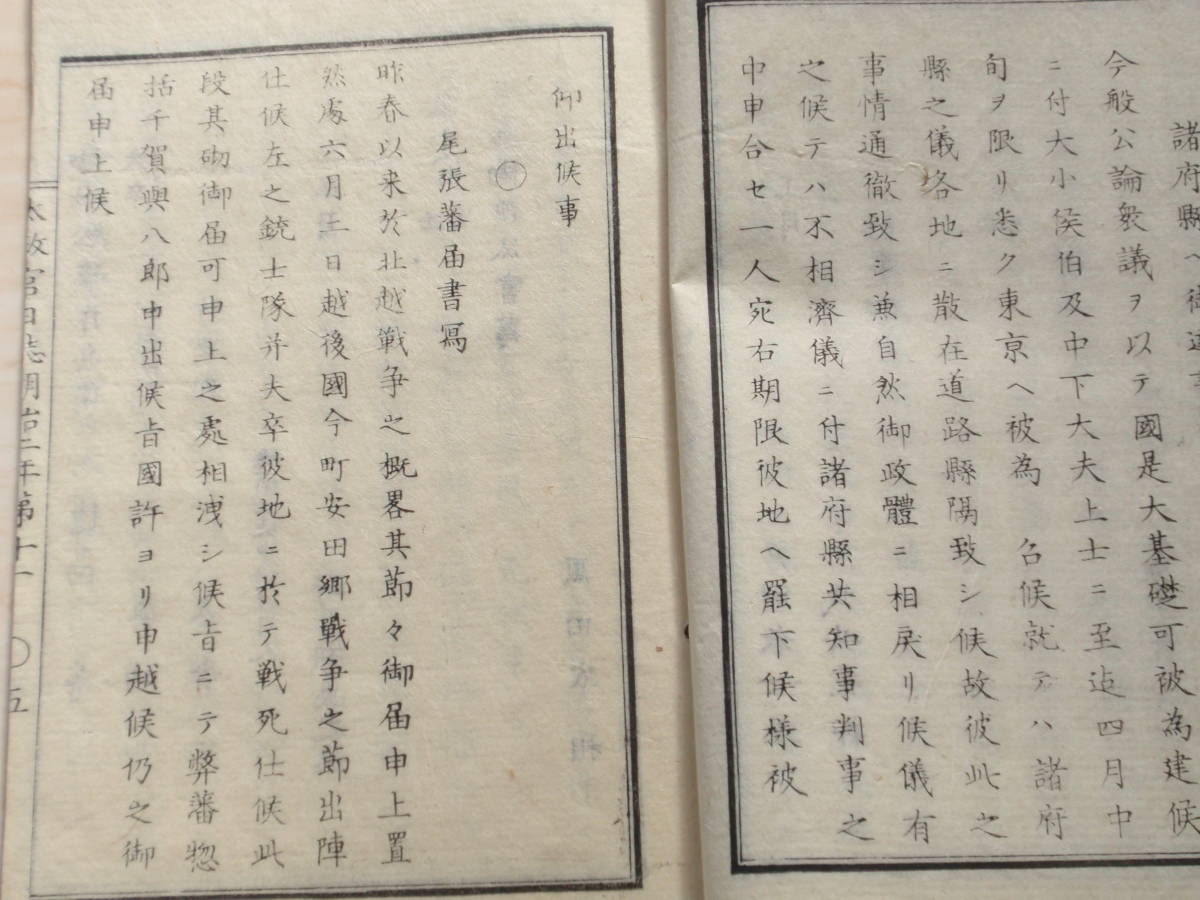 諸府縣ヘ御達
今般公論衆議ヲ以テ國是大基礎可被為建候
ニ付大小侯伯及中下大夫上士ニ至迄四月中
旬ヲ限リ悉ク東京ヘ被為 召候就テハ諸府
縣之儀各地ニ散在道路縣隔致シ候故彼此之
事情通徹致シ兼自然御政體ニ相戻リ候儀有
之候テハ不相濟儀ニ付諸府縣共知事判事之
中申合セ一人宛右期限彼地ヘ罷下候様被
仰出候事
○
尾張藩届書寫
昨春以来於北越戰争之概畧其節々御届申上置
然處六月二日越後國今町安田郷戰争之節出陣
仕候左之銃士隊并夫卒彼地ニ於テ戦死仕候此
段其砌御届可申上之處相洩シ候旨ニテ弊藩惣
括千賀與八郎申出候旨國許ヨリ申越候仍之御
届申上候
太政官日誌明治二年第十一 ○五